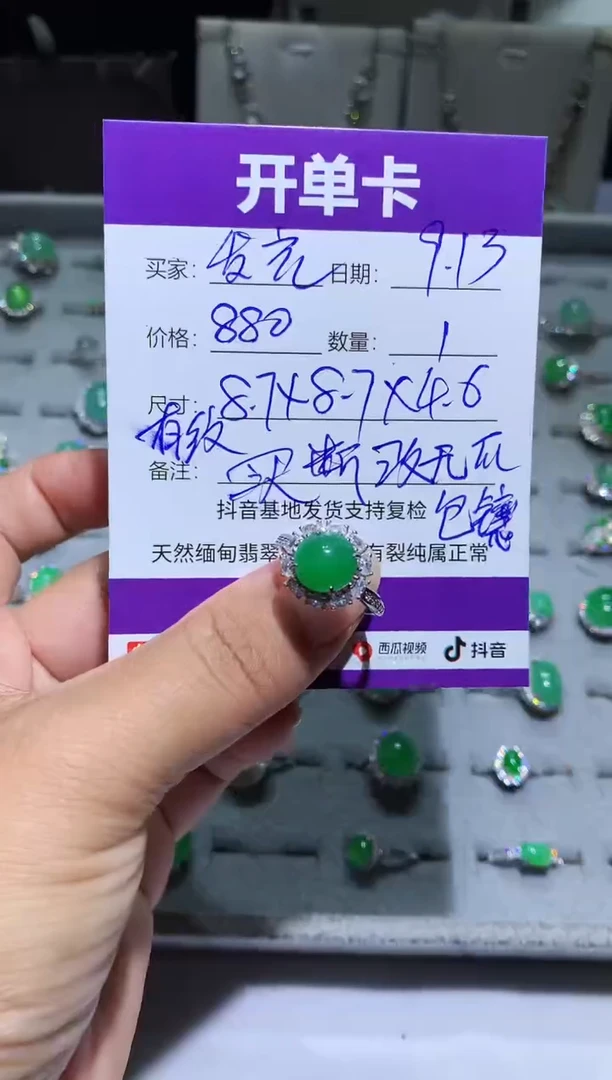 开单卡
买家: 发 日期: 9.13
价格: 880 数量: 1
尺寸: 8.7×8.7×4.6
有纹
备注: 买断改无瓜
包镶
抖音基地发货支持复检
天然缅甸翡翠 有裂纯属正常
西瓜视频 抖音